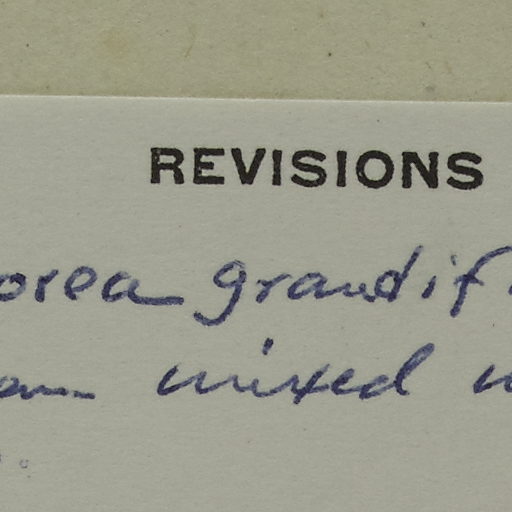 REVISIONS
orea grandif
mixed